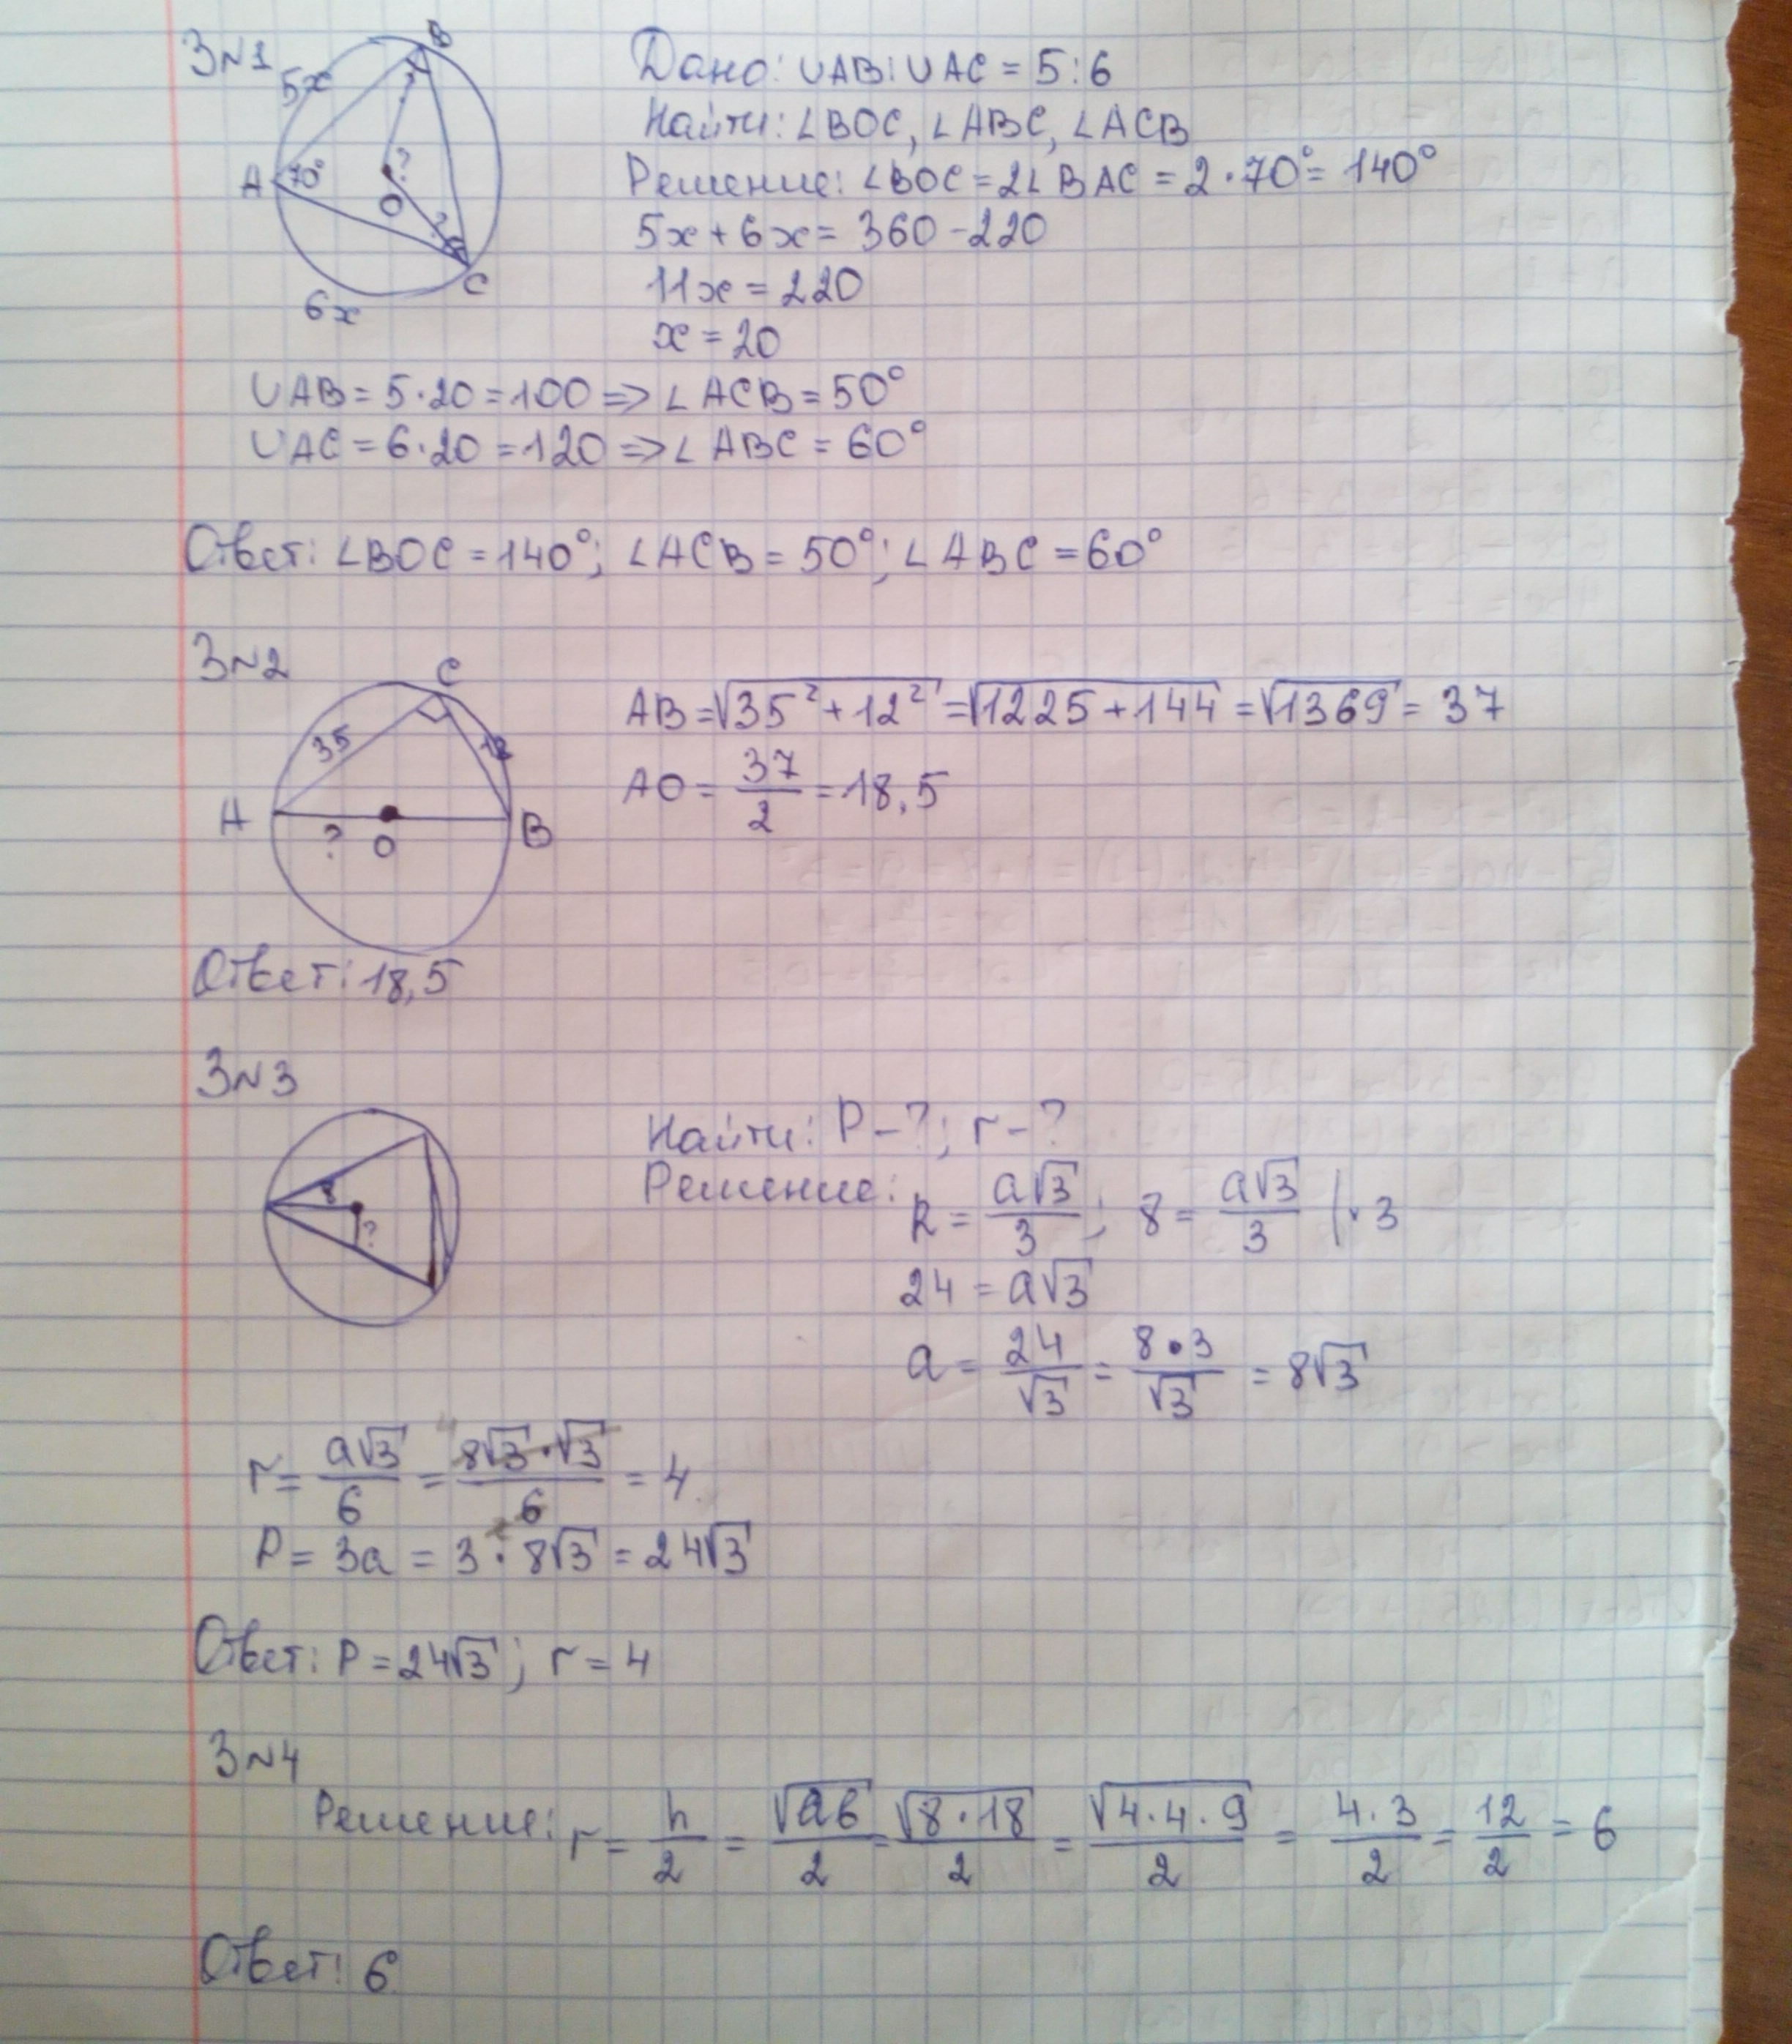 З№1
B
5x
A 70°
?
?
O
?
C
6x
Дано: ∪AB:∪AC = 5:6
Найти: ∠BOC, ∠ABC, ∠ACB
Решение: ∠BOC = 2∠BAC = 2·70° = 140°
5x + 6x = 360 - 220
11x = 220
x = 20
∪AB = 5·20 = 100 => ∠ACB = 50°
∪AC = 6·20 = 120 => ∠ABC = 60°
Ответ: ∠BOC = 140°; ∠ACB = 50°; ∠ABC = 60°
З№2
C
35
12
A
B
?
O
AB = √35² + 12² = √1225 + 144 = √1369 = 37
AO = 37/2 = 18,5
Ответ: 18,5
З№3
8
?
Найти: P - ?; r - ?
Решение: R = a√3/3; 8 = a√3/3 |·3
24 = a√3
a = 24/√3 = 8·3/√3 = 8√3
r = a√3/6 = 8√3·√3/6 = 4
P = 3a = 3·8√3 = 24√3
Ответ: P = 24√3; r = 4
З№4
Решение: r = h/2 = √ab/2 = √8·18/2 = √4·4·9/2 = 4·3/2 = 12/2 = 6
Ответ: 6